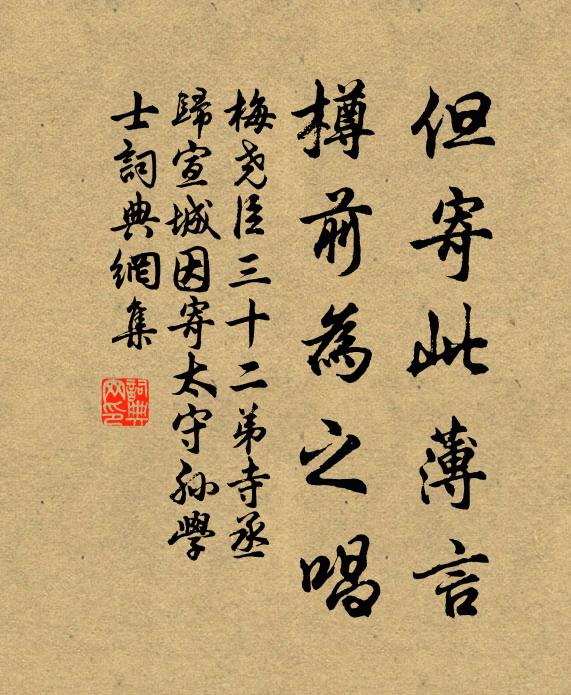 但寄此薄言
樽前為之唱
梅尧臣三十二弟寺丞
歸宣城因寄太守孙學
士詞典網集
詞典
网印